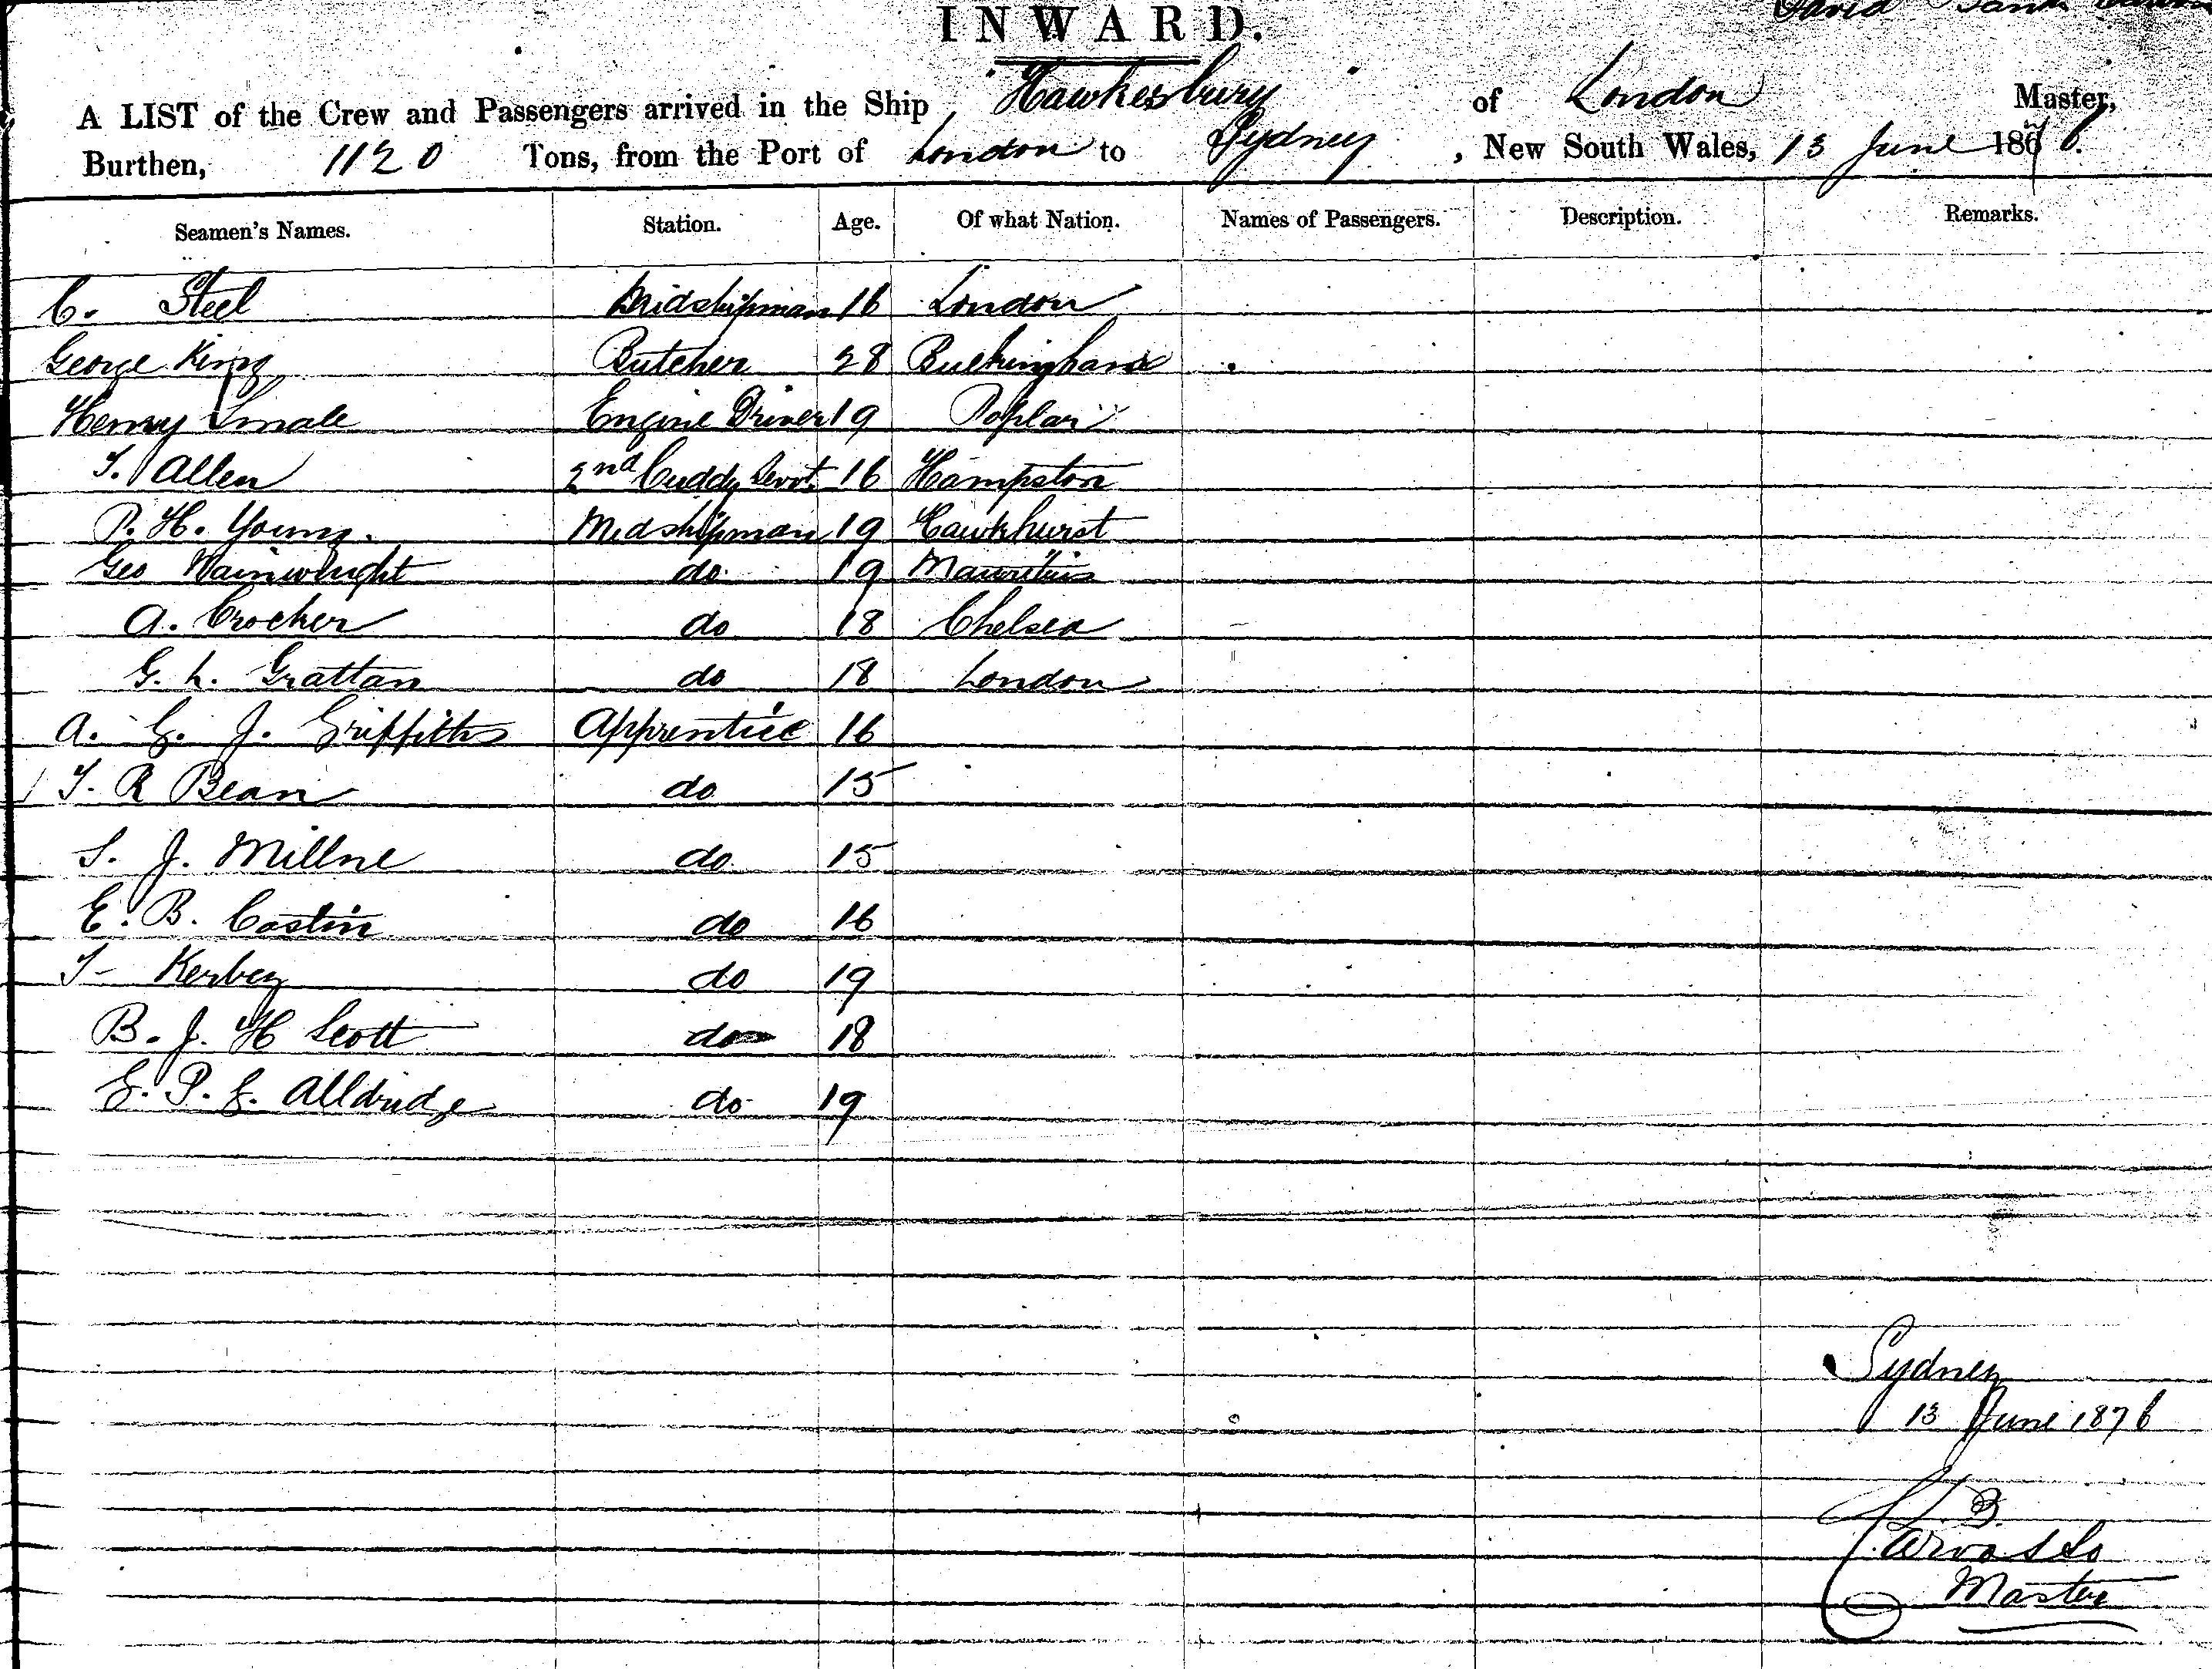 INWARD.
David
A LIST of the Crew and Passengers arrived in the Ship Hawkesbury of London Master,
Burthen, 1120 Tons, from the Port of London to Sydney, New South Wales, 13 June 1876.
Seamen's Names. Station. Age. Of what Nation. Names of Passengers. Description. Remarks.
C. Steel Midshipman 16 London
George King Butcher 28 Buckingham
Henry Smale Engine Driver 19 Poplar
T. Allen 2nd Cuddy Servt. 16 Hampston
P. H. Young. Midshipman 19 Hawkhurst
Geo Wainwright do. 19 Mauritius
A. Crocker do 18 Chelsea
G. L. Grattan do 18 London
A. G. J. Griffiths Apprentice 16
T. R Bean do 15
S. J. Millne do. 15
E. B. Castin do 16
T- Kerbey do 19
B. J. H Scott do 18
G. P. G. Alldridge do 19
Sydney
13 June 1876
B.
Master